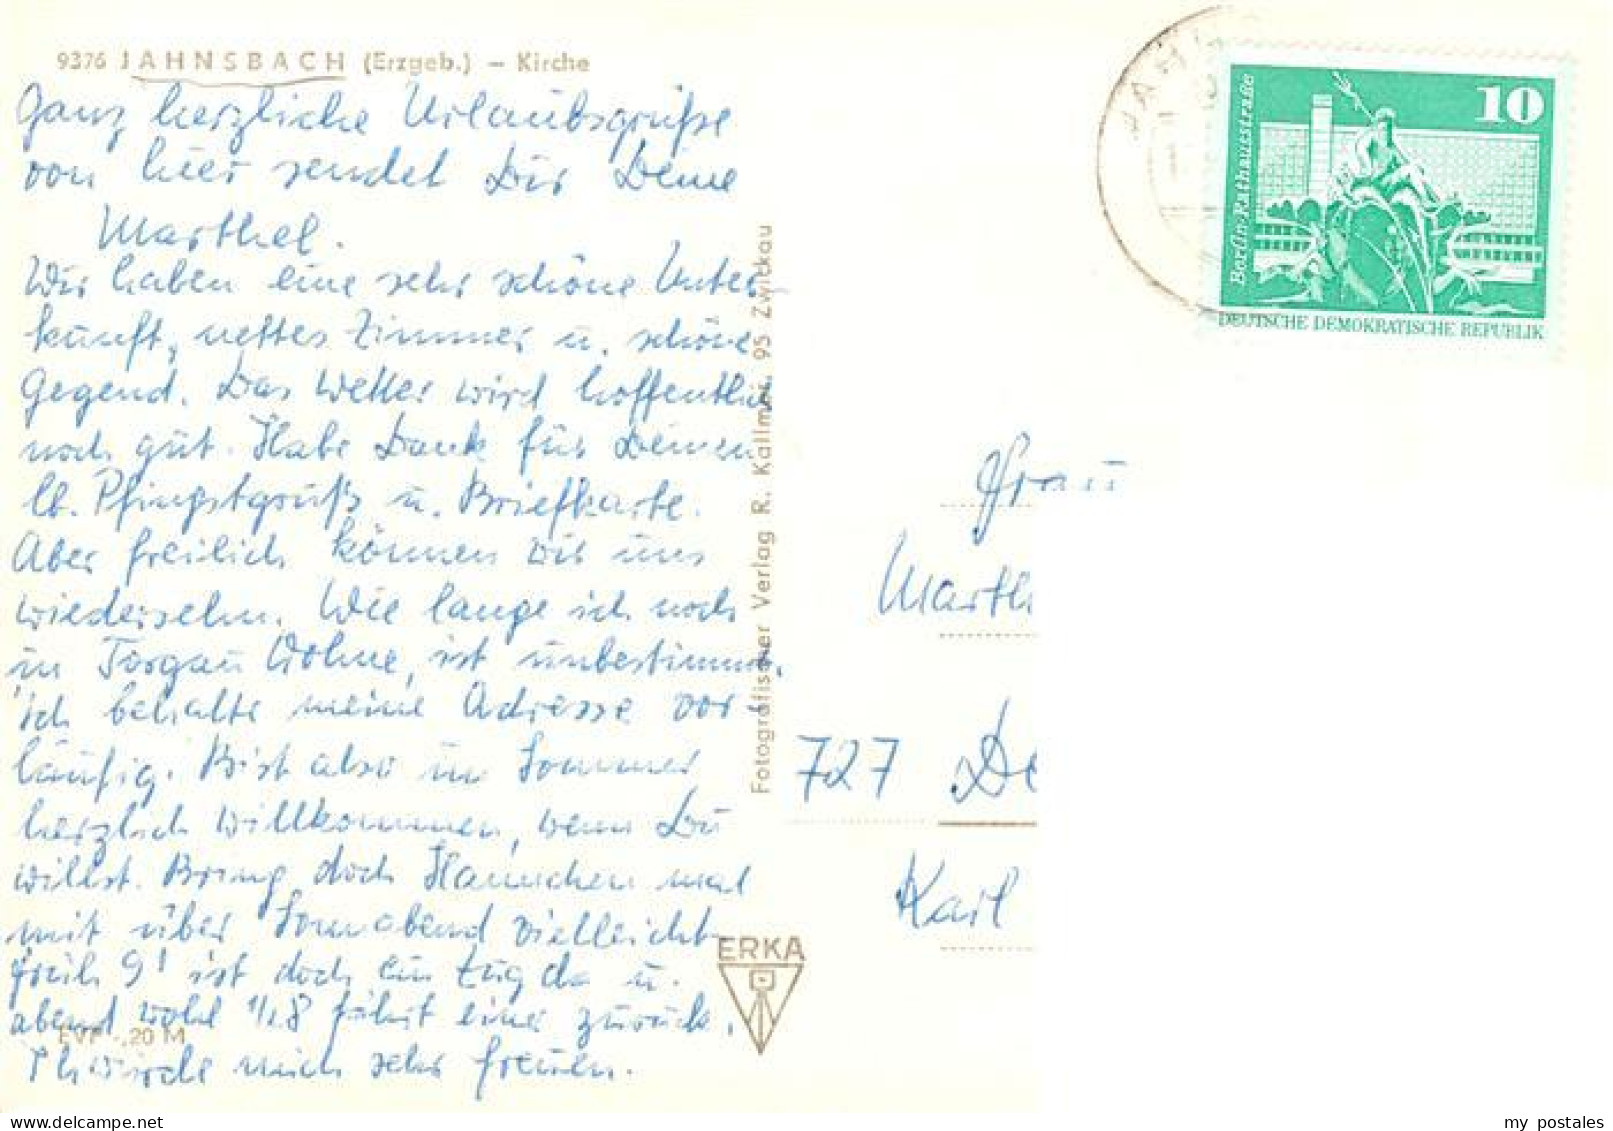 9376 JAHNSBACH (Erzgeb.) – Kirche
Ganz herzliche Urlaubsgrüße
von hier sendet Dir Deine
Marthel.
Wir haben eine sehr schöne Unter-
kunft, nettes Zimmer u. schöne
Gegend. Das Wetter wird hoffentlich
noch gut. Habe Dank für Deinen
lb. Pfingstgruß u. Briefkarte.
Aber freilich können wir uns
wiedersehn. Wie lange ich noch
in Torgau Wohne, ist unbestimmt.
Ich behalte meine Adresse vor
läufig. Bist also im Sommer
herzlich willkommen, wenn Du
willst. Bring doch Hannchen mal
mit über Sonnabend vielleicht
früh 9! ist doch ein Zug da u.
abend wohl 1/28 fährt einer zurück.
Ich würde mich sehr freuen.
EVP -,20 M
Fotografischer Verlag R. Kallmer, 95 Zwickau
ERKA
JAHN
10
Berlin-Rathausstraße
DEUTSCHE DEMOKRATISCHE REPUBLIK
Frau
Marth
727 De
Karl
delcampe.net
my_postales